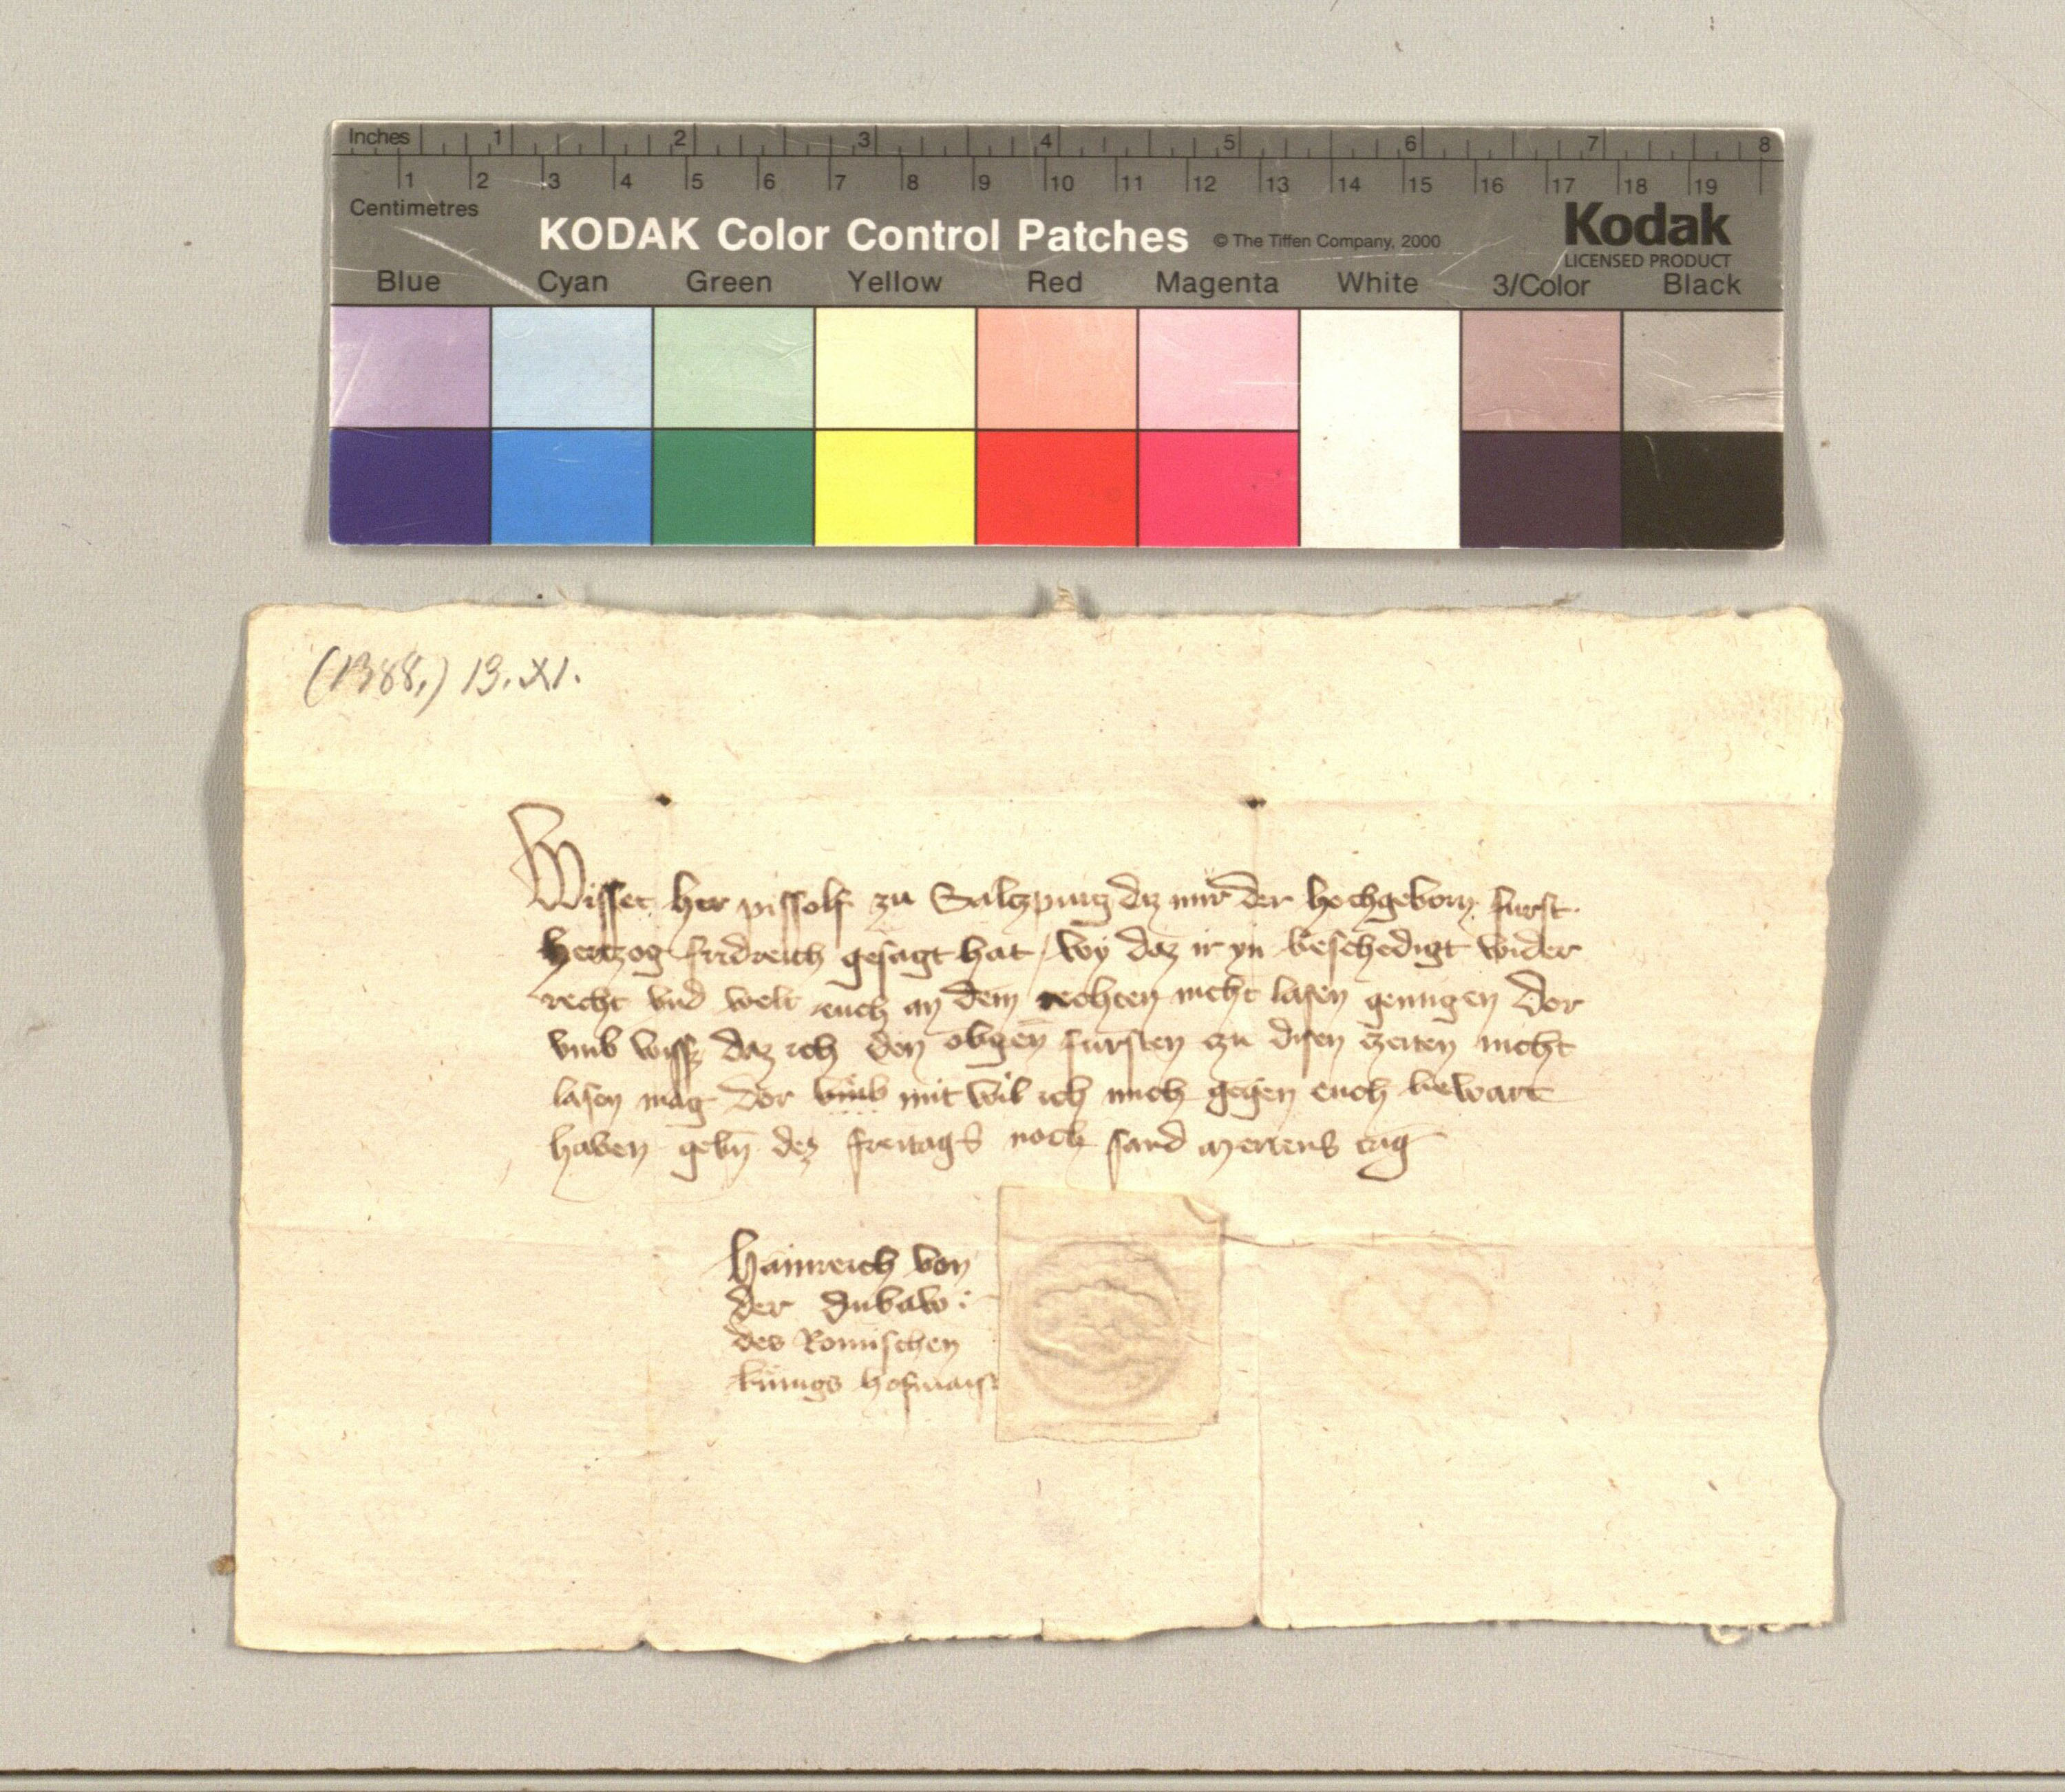 Inches 1 2 3 4 5 6 7 8
1 2 3 4 5 6 7 8 9 10 11 12 13 14 15 16 17 18 19
Centimetres
KODAK Color Control Patches © The Tiffen Company, 2000 Kodak
LICENSED PRODUCT
Blue Cyan Green Yellow Red Magenta White 3/Color Black
(1388.) 13. XI.
Wisset her pissolf zu Saltzpurg dz mir der hochgeborn furst
hertzog fridreich gesagt hat / wy daz ir yn beschedigt wider
recht vnd welt euch an dem rechten nicht lasen genugen Dor
vmb wissz daz ich den obgen fursten zu disen zeiten nicht
lasen mag Dor vmb mit wil ich mich gegen euch bewart
haben gebn dez freitags noch sand Mertens tag
Hainreich von
der Dubaw
des Romischen
kunigs hofmaist